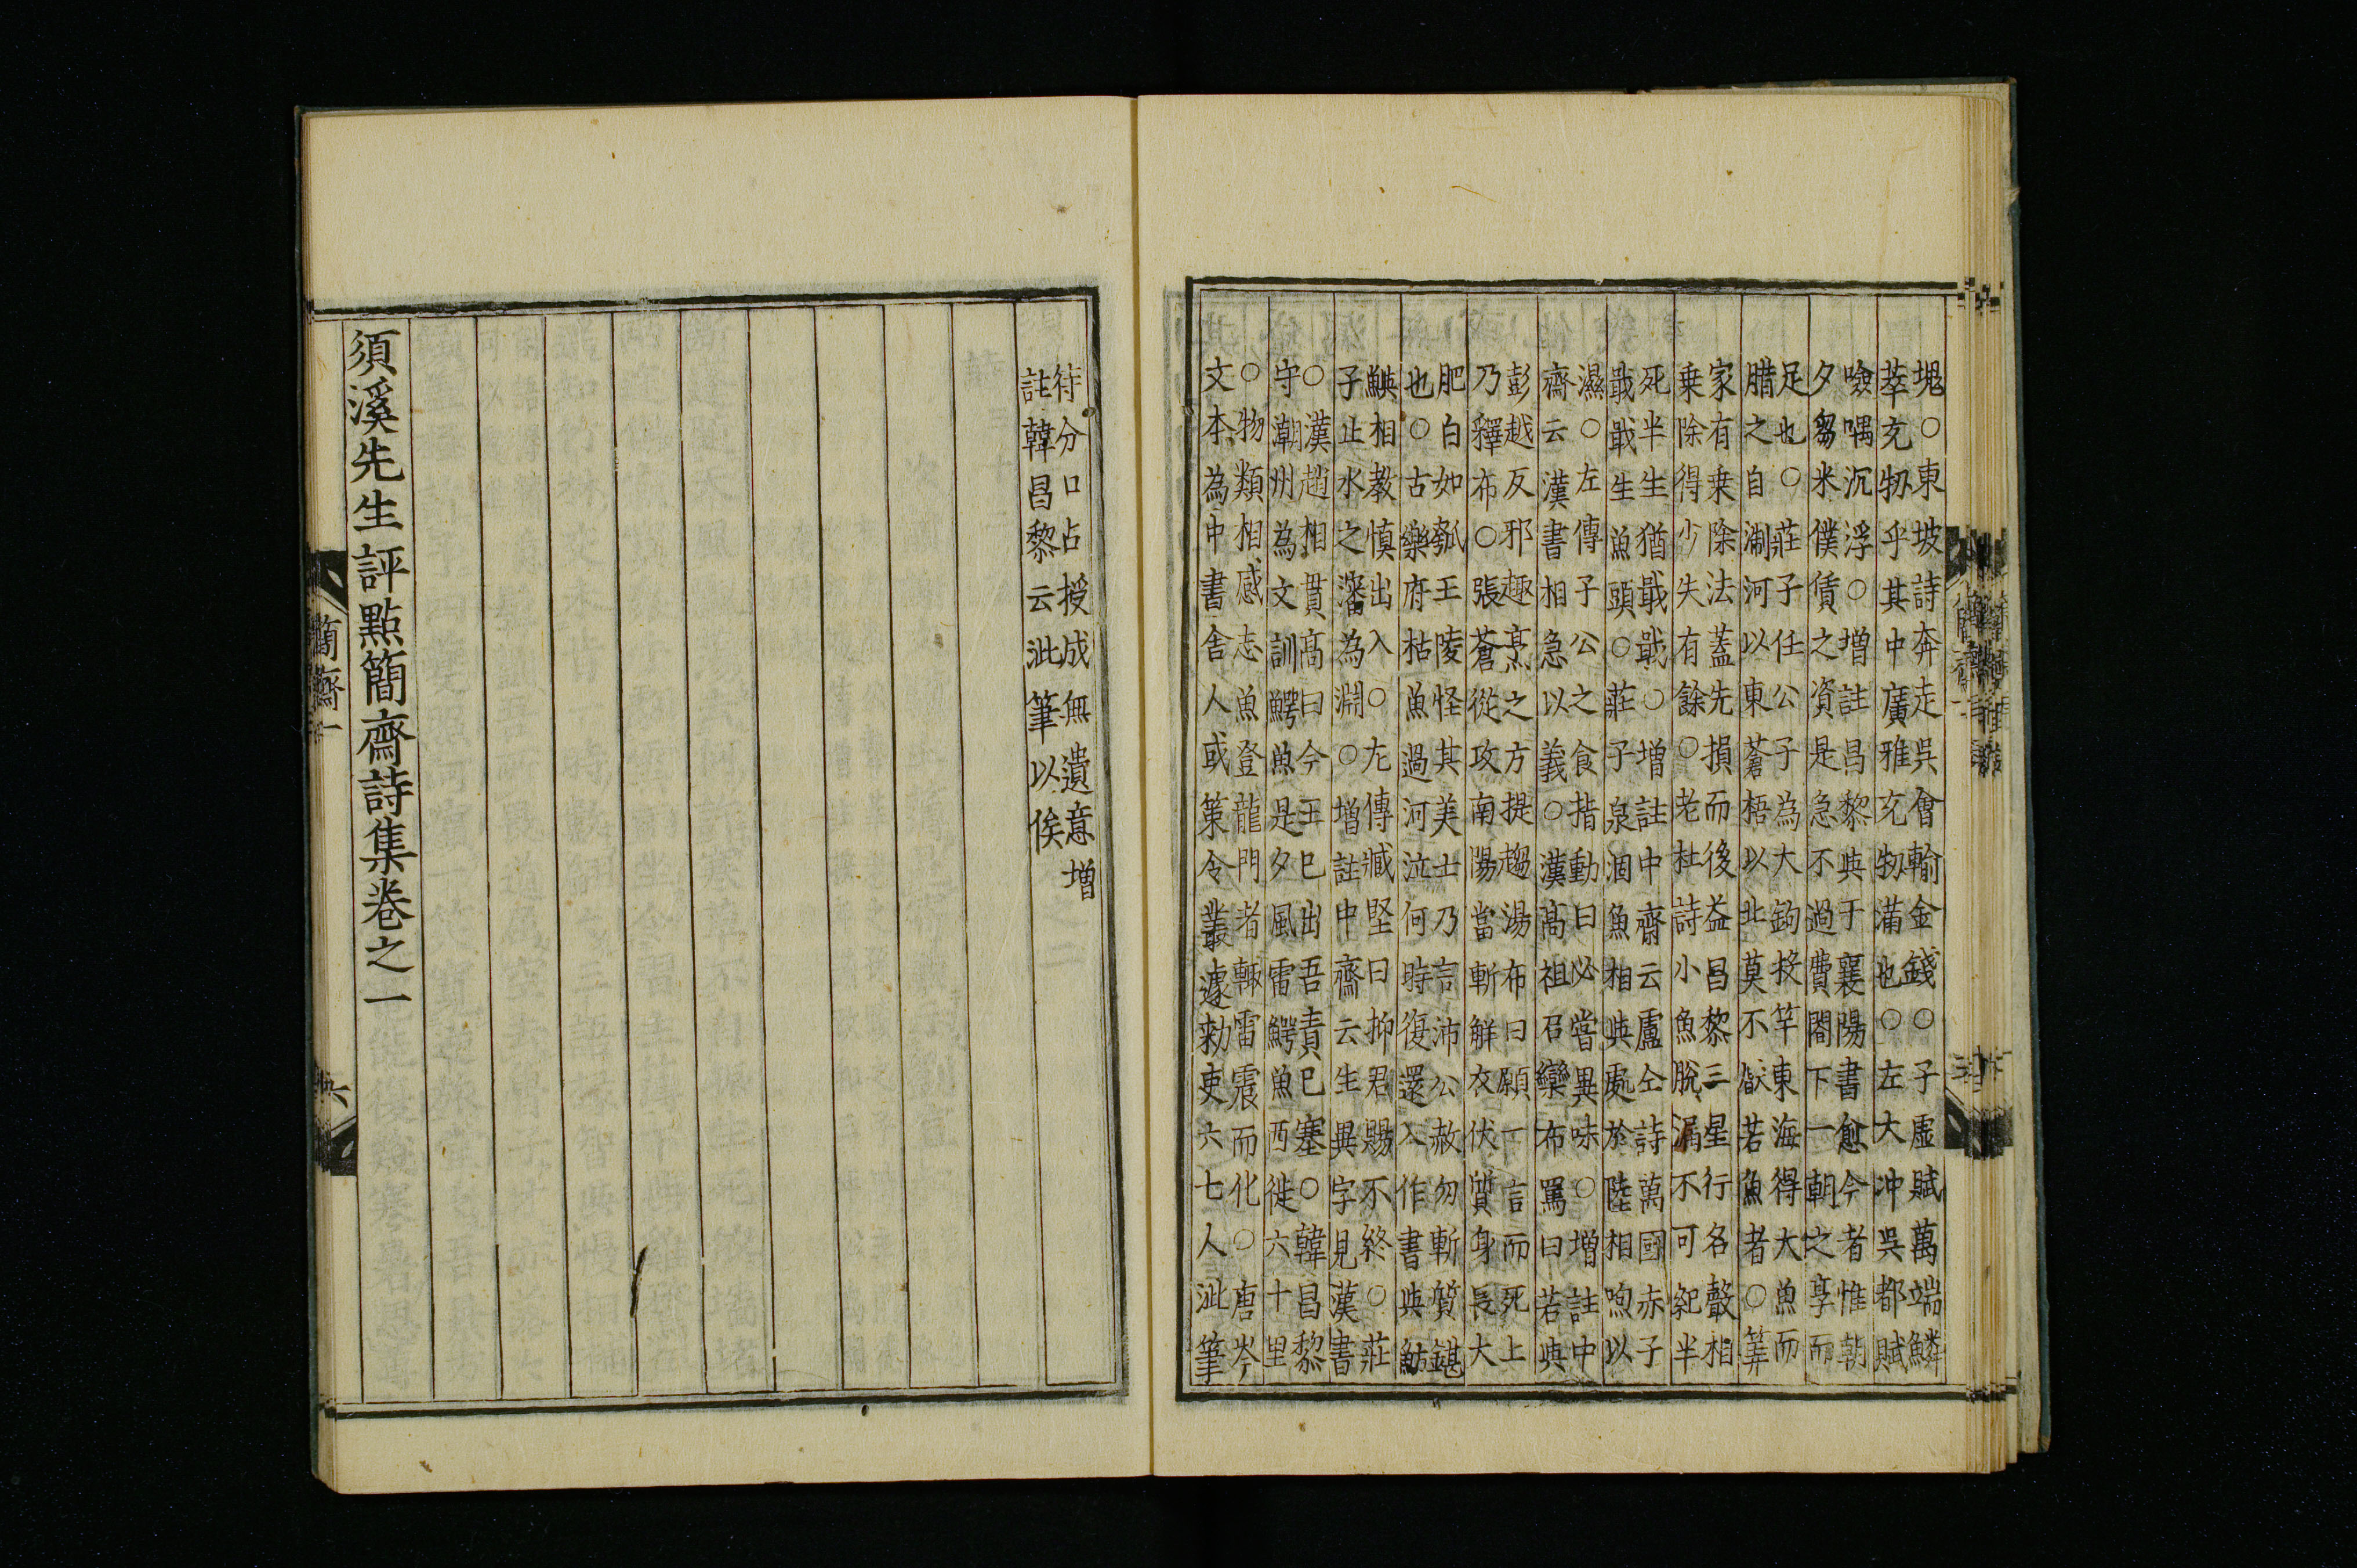 塊○東坡詩奔走吳會輸金錢○子虛賦萬端鱗
萃充牣乎其中廣雅充牣滿也○左大冲吳都賦
噞喁沉浮○增註昌黎與于襄陽書愈今者惟朝
夕芻米僕賃之資是急不過費閤下一朝之享而
足也○莊子任公子為大鉤投竿東海得大魚而
腊之自淛河以東蒼梧以北莫不猒若魚者○筭
家有乗除法蓋先損而後益昌黎三星行名聲相
乗除得少失有餘○老杜詩小魚脫漏不可紀半
死半生猶戢戢○增註中齋云盧仝詩萬國赤子
戢戢生魚頭○莊子泉涸魚相與處於陸相呴以
濕○左傳子公之食指動曰必嘗異味○增註中
齋云漢書相急以義○漢高祖召欒布罵曰若與
彭越反邪趣烹之方提趨湯布曰願一言而死上
乃釋布○張蒼從攻南陽當斬解衣伏質身長大
肥白如瓠王陵怪其美士乃言沛公赦勿斬質鍖
也○古樂府枯魚過河泣何時復還入作書與魴
鱮相教慎出入○左傳臧堅曰抑君賜不終○莊
子止水之瀋為淵○增註中齋云生異字見漢書
○漢趙相貫高曰今王已出吾責已塞○韓昌黎
守潮州為文訓鰐魚是夕風雷鰐魚西徙六十里
○物類相感志魚登龍門者輙雷震而化○唐岑
文本為中書舍人或策令叢遽勑吏六七人泚筆
待分口占授成無遺意增
註韓昌黎云泚筆以俟
須溪先生評點簡齋詩集卷之一
簡齋一
六